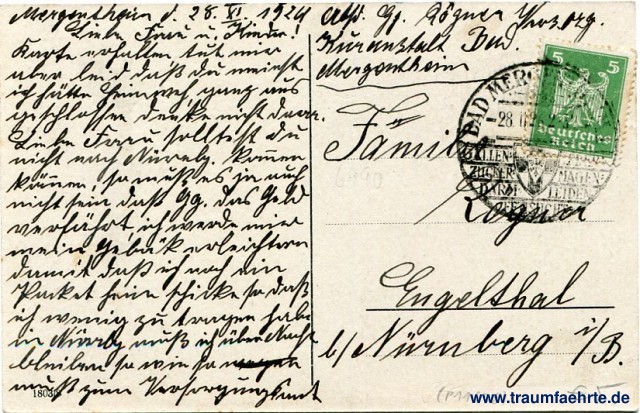 Mergentheim d. 28. VI. 1924
Liebe Frau u. Kinder!
Karte erhalten tut mir
aber leid daß du meinst
ich hätte Heimweh ganz aus
geschlossen denke nicht dran
Liebe Frau solltest du
nicht nach Nürnbg. kommen
können, so muß es ja auch
nicht sein daß Gg. das Geld
verfährt, ich werde mir
mein Gebäck erleichtern
damit daß ich noch ein
Packet heim schicke so daß
ich wenig zu tragen habe
in Nürnbg muß ich über Nacht
bleiben so wie so
muß zum Versorgungsamt
18036
Abs. Gg. Rögner Versorg.
Kuranstalt Bad
Mergentheim
Familie
6490
Rögner
Engelthal
b/ Nürnberg i/B.
5 5
Deutsches
Reich
BAD MERGENTHEIM
28
GALLEN-
ZUCKER MAGEN-
DARM LEIDEN
www.traumfaehrte.de